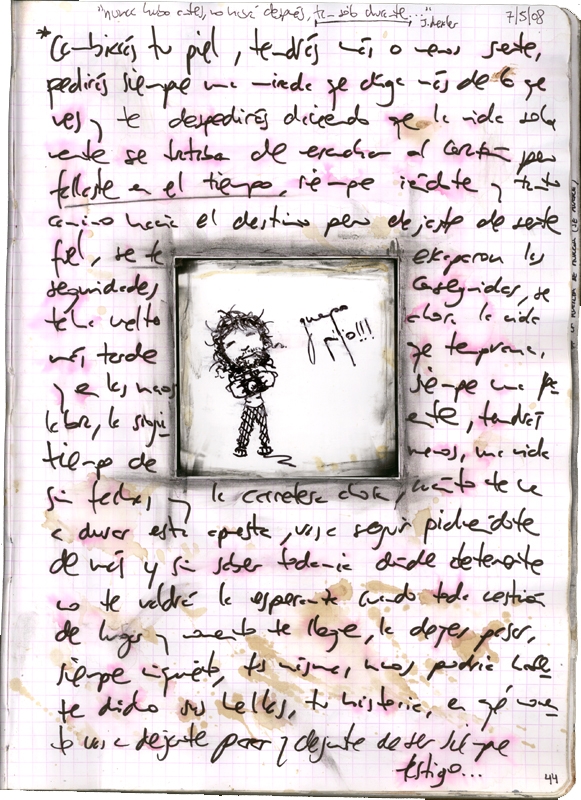 "nunca hubo antes, no habrá después, tan sólo durante..."
7/5/08
* Cambiarás tu piel, tendrás más o menos suerte,
pedirás siempre una mirada que diga más de lo que
ves y te despedirás diciendo que la vida sola
mente se trataba de escuchar al corazón pero
fallaste en el tiempo, siempe y tanto
camino hacia el destino pero dejaste de serte
fiel, se te escaparon las
seguridades conseguidas, se
te ha vuelto ahora la vida
más tarde que temprana,
y en las manos siempe una pa
labra, la siguiente, tendrás
tiempo de menos, una vida
sin fechas y la carretera ahora, cuánto te va
a durar esta apuesta, vas a seguir pidiéndote
de más y sin saber todavía dónde detenerte
no te valdrá la esperanza cuando toda cuestión
de lugar y momento te llegue, la dejes pasar,
siempre inquieto, tus mismas manos podrían haber
te dicho sus huellas, tu historia, en qué momen
to vas a dejarte parar y dejarte de ser siempe
testigo...
guapo
pijo!!!
44